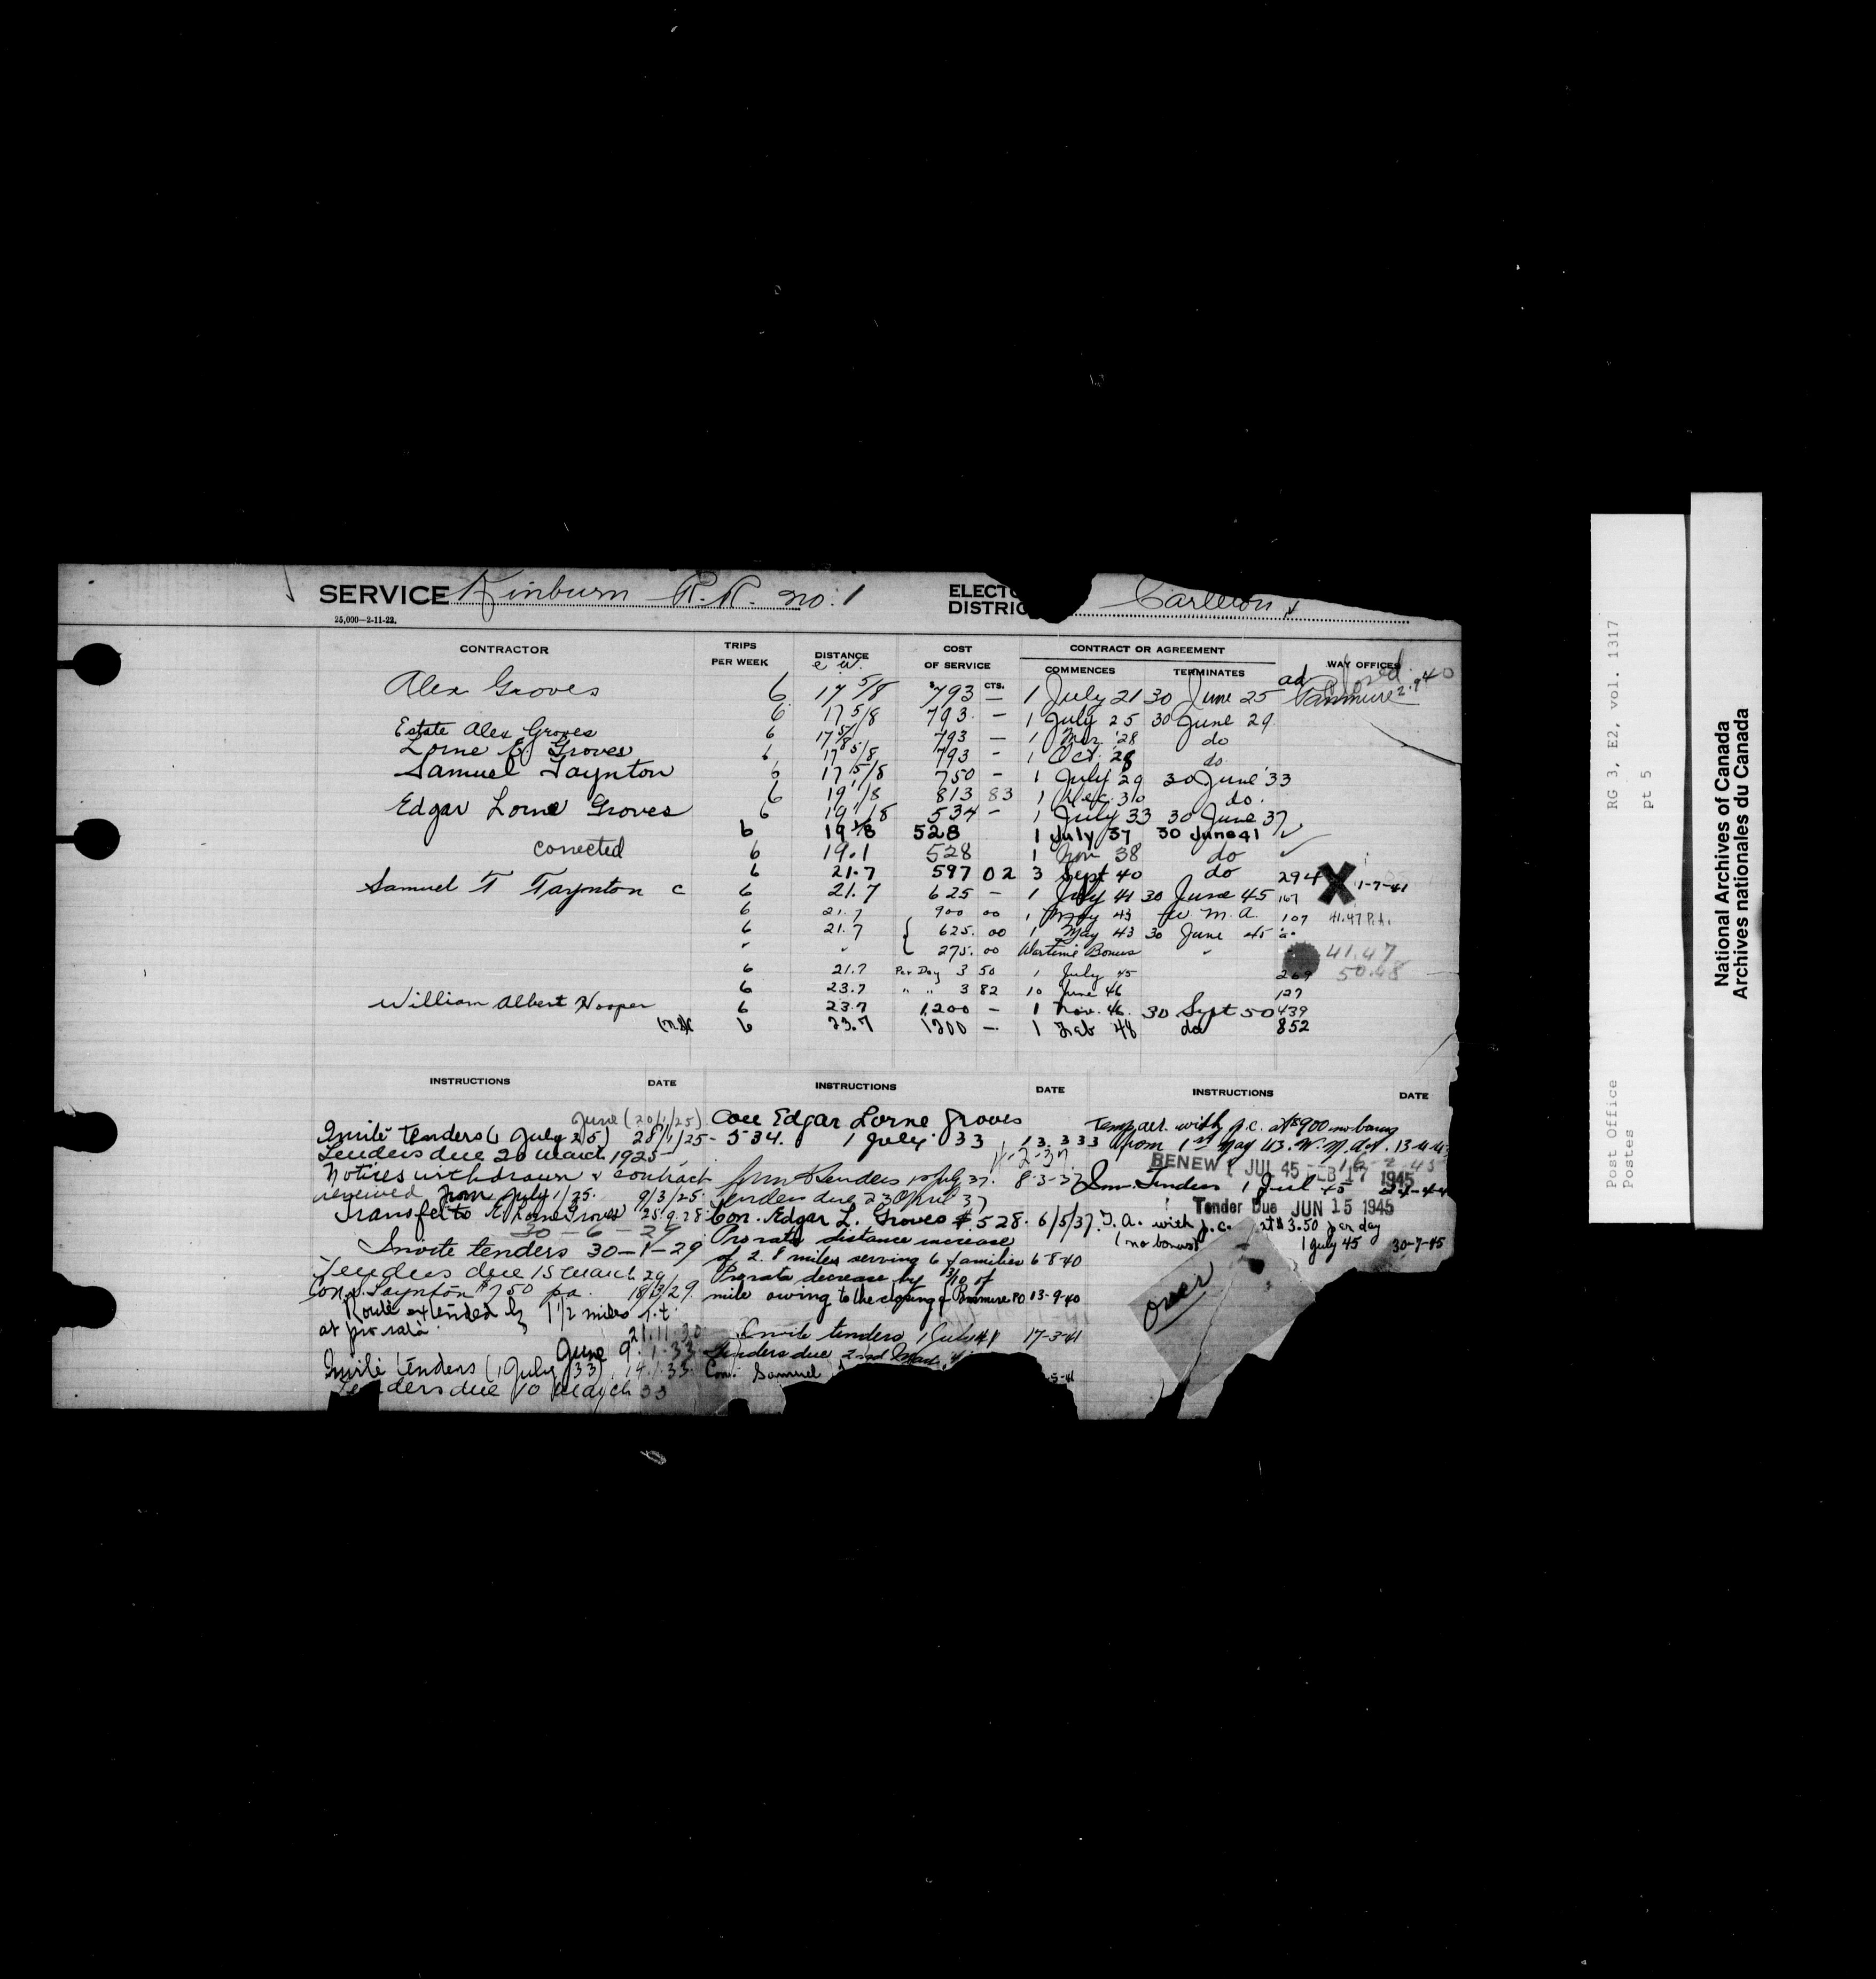 SERVICE Kinburn R.R. no. 1 ELECTO DISTRIC Carleton
25,000-2-11-22.
CONTRACTOR TRIPS PER WEEK DISTANCE COST OF SERVICE CONTRACT OR AGREEMENT COMMENCES TERMINATES WAY OFFICES
e w. $ CTS. closed
Alex Groves 6 17 5/8 793 — 1 July 21 30 June 25 ad Panmure 2.9.40
6 17 5/8 793. — 1 July 25 30 June 29
Estate Alex Groves 6 17 5/8 793 — 1 Mar '28 do
Lorne E. Groves 6 17 5/8 793 — 1 Oct. 28 do
Samuel Taynton 6 17 5/8 750 — 1 July 29 30 June '33
6 19 1/8 813 83 1 Dec. 30 do.
Edgar Lorne Groves 6 19 1/8 534 — 1 July 33 30 June 37
6 19 1/8 528 1 July 37 30 June 41
corrected 6 19.1 528 1 Nov 38 do
6 21.7 597 02 3 Sept 40 do 294 X 1-7-41
Samuel T Taynton c 6 21.7 625 — 1 July 41 30 June 45 167
6 21.7 900 00 1 May 43 W. M. A. 107 41.47 P.A.
6 21.7 { 625. 00 1 May 43 30 June 45
" " { 275. 00 Wartime Bonus " 41.47
6 21.7 Per Day 3 50 1 July 45 269 50.48
6 23.7 " " 3 82 10 June 46 127
William Albert Hooper 6 23.7 1,200 — 1 Nov. 46. 30 Sept 50 439
6 23.7 1200 — 1 Feb 48 do 852
INSTRUCTIONS DATE INSTRUCTIONS DATE INSTRUCTIONS DATE
June (20/1/25)
Invite tenders (1 July 25) 28/1/25
Tenders due 20 March 1925
Notices withdrawn & contract
renewed from July 1/25. 9/3/25.
Transfer to E. Lorne Groves 25.9.28
30-6-29
Invite tenders 30-1-29
Tenders due 15 March 29
Con. S. Taynton $750 pa. 18/3/29.
Route extended by 1 1/2 miles r.t.
at pro rata. 21.11.30
June 9.1.33
Invite tenders (1 July 33) 14.1.33
Tenders due 10 March 33
Con Edgar Lorne Groves
534. 1 July 33 13.3.33
11-2-37.
Tenders 1st July 37. 8-3-37
Tenders due 23 April 37
Con. Edgar L. Groves $528. 6/5/37.
Prorata distance increase
of 2.8 miles serving 6 families 6-8-40
Prorata decrease by 3/10 of
mile owing to the closing of Panmure PO 13-9-40
Invite tenders 1 July 41 17-3-41
Tenders due 2nd
Con. Samuel 5-41
Temp arr. with p.c. at $900 no bonus
from 1st May 43. W.M.A.
RENEW 1 JUL 45 FEB 17 1945
Inv. Tenders 1 Jul 45
Tender Due JUN 15 1945
T. A. with p.c. at $3.50 per day
(no bonus) 1 July 45 30-7-45
over
Post Office RG 3, E2, vol. 1317
Postes pt 5
National Archives of Canada
Archives nationales du Canada